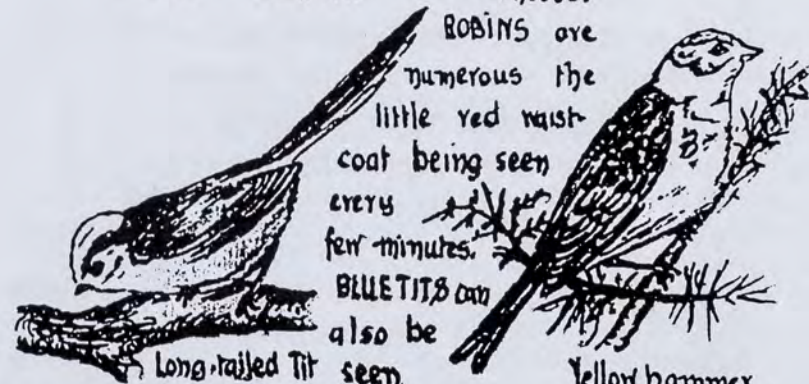 ROBINS are
numerous the
little red waist-
coat being seen
every
few minutes.
BLUE TITS can
also be
seen
Long-tailed Tit
Yellow hammer